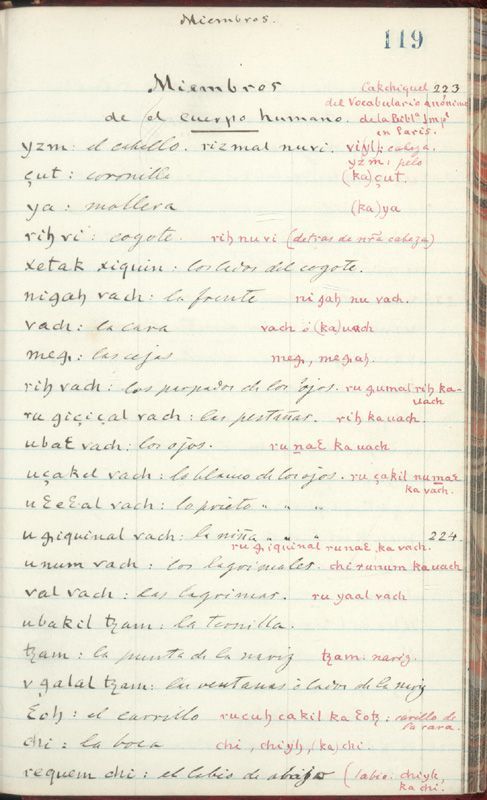 Miembros.
119
Miembros
de el cuerpo humano.
Cakchiquel 223
del Vocabulario anónimo
de la Bibl.ª Imp.l
en Paris.
yzm: el cabello. rizmal nuvi. viyl: cabeza.
yzm: pelo
çut: coronilla (ka)çut.
ya: mollera (ka)ya
rih vi: cogote. rih nu vi (detras de nrã cabeza)
xetak xiquin: los lados del cogote.
nigah vach: la frente ni gah nu vach.
vach: la cara vach ó (ka)uach
meg: las cejas meg, megah.
rih vach: los parpados de los ojos. ru gumal rih ka-
uach
ru giçiçal vach: las pestañas. rih ka uach.
ubaƐ vach: los ojos. ru naƐ ka uach
uçakil vach: lo blanco de los ojos. ru çakil nu naƐ
ka vach.
uƐeƐal vach: lo prieto " " "
ugiquinal vach: la niña " " " 224
ru giquinal runaƐ ka vach.
unum vach: los lagrimales. chi runum ka uach
val vach: las lagrimas. ru yaal vach
ubakil tzam: la ternilla.
tzam: la punta de la nariz tzam: nariz.
v galal tzam: las ventanas ó lados de la nariz
Ɛoh: el carrillo rucuh çakil ka Ɛotz: carillo de
la cara.
chi: la boca chi, chiyh, (ka)chi.
requem chi: el labio de abajo (labio: chiyh
ka chi.